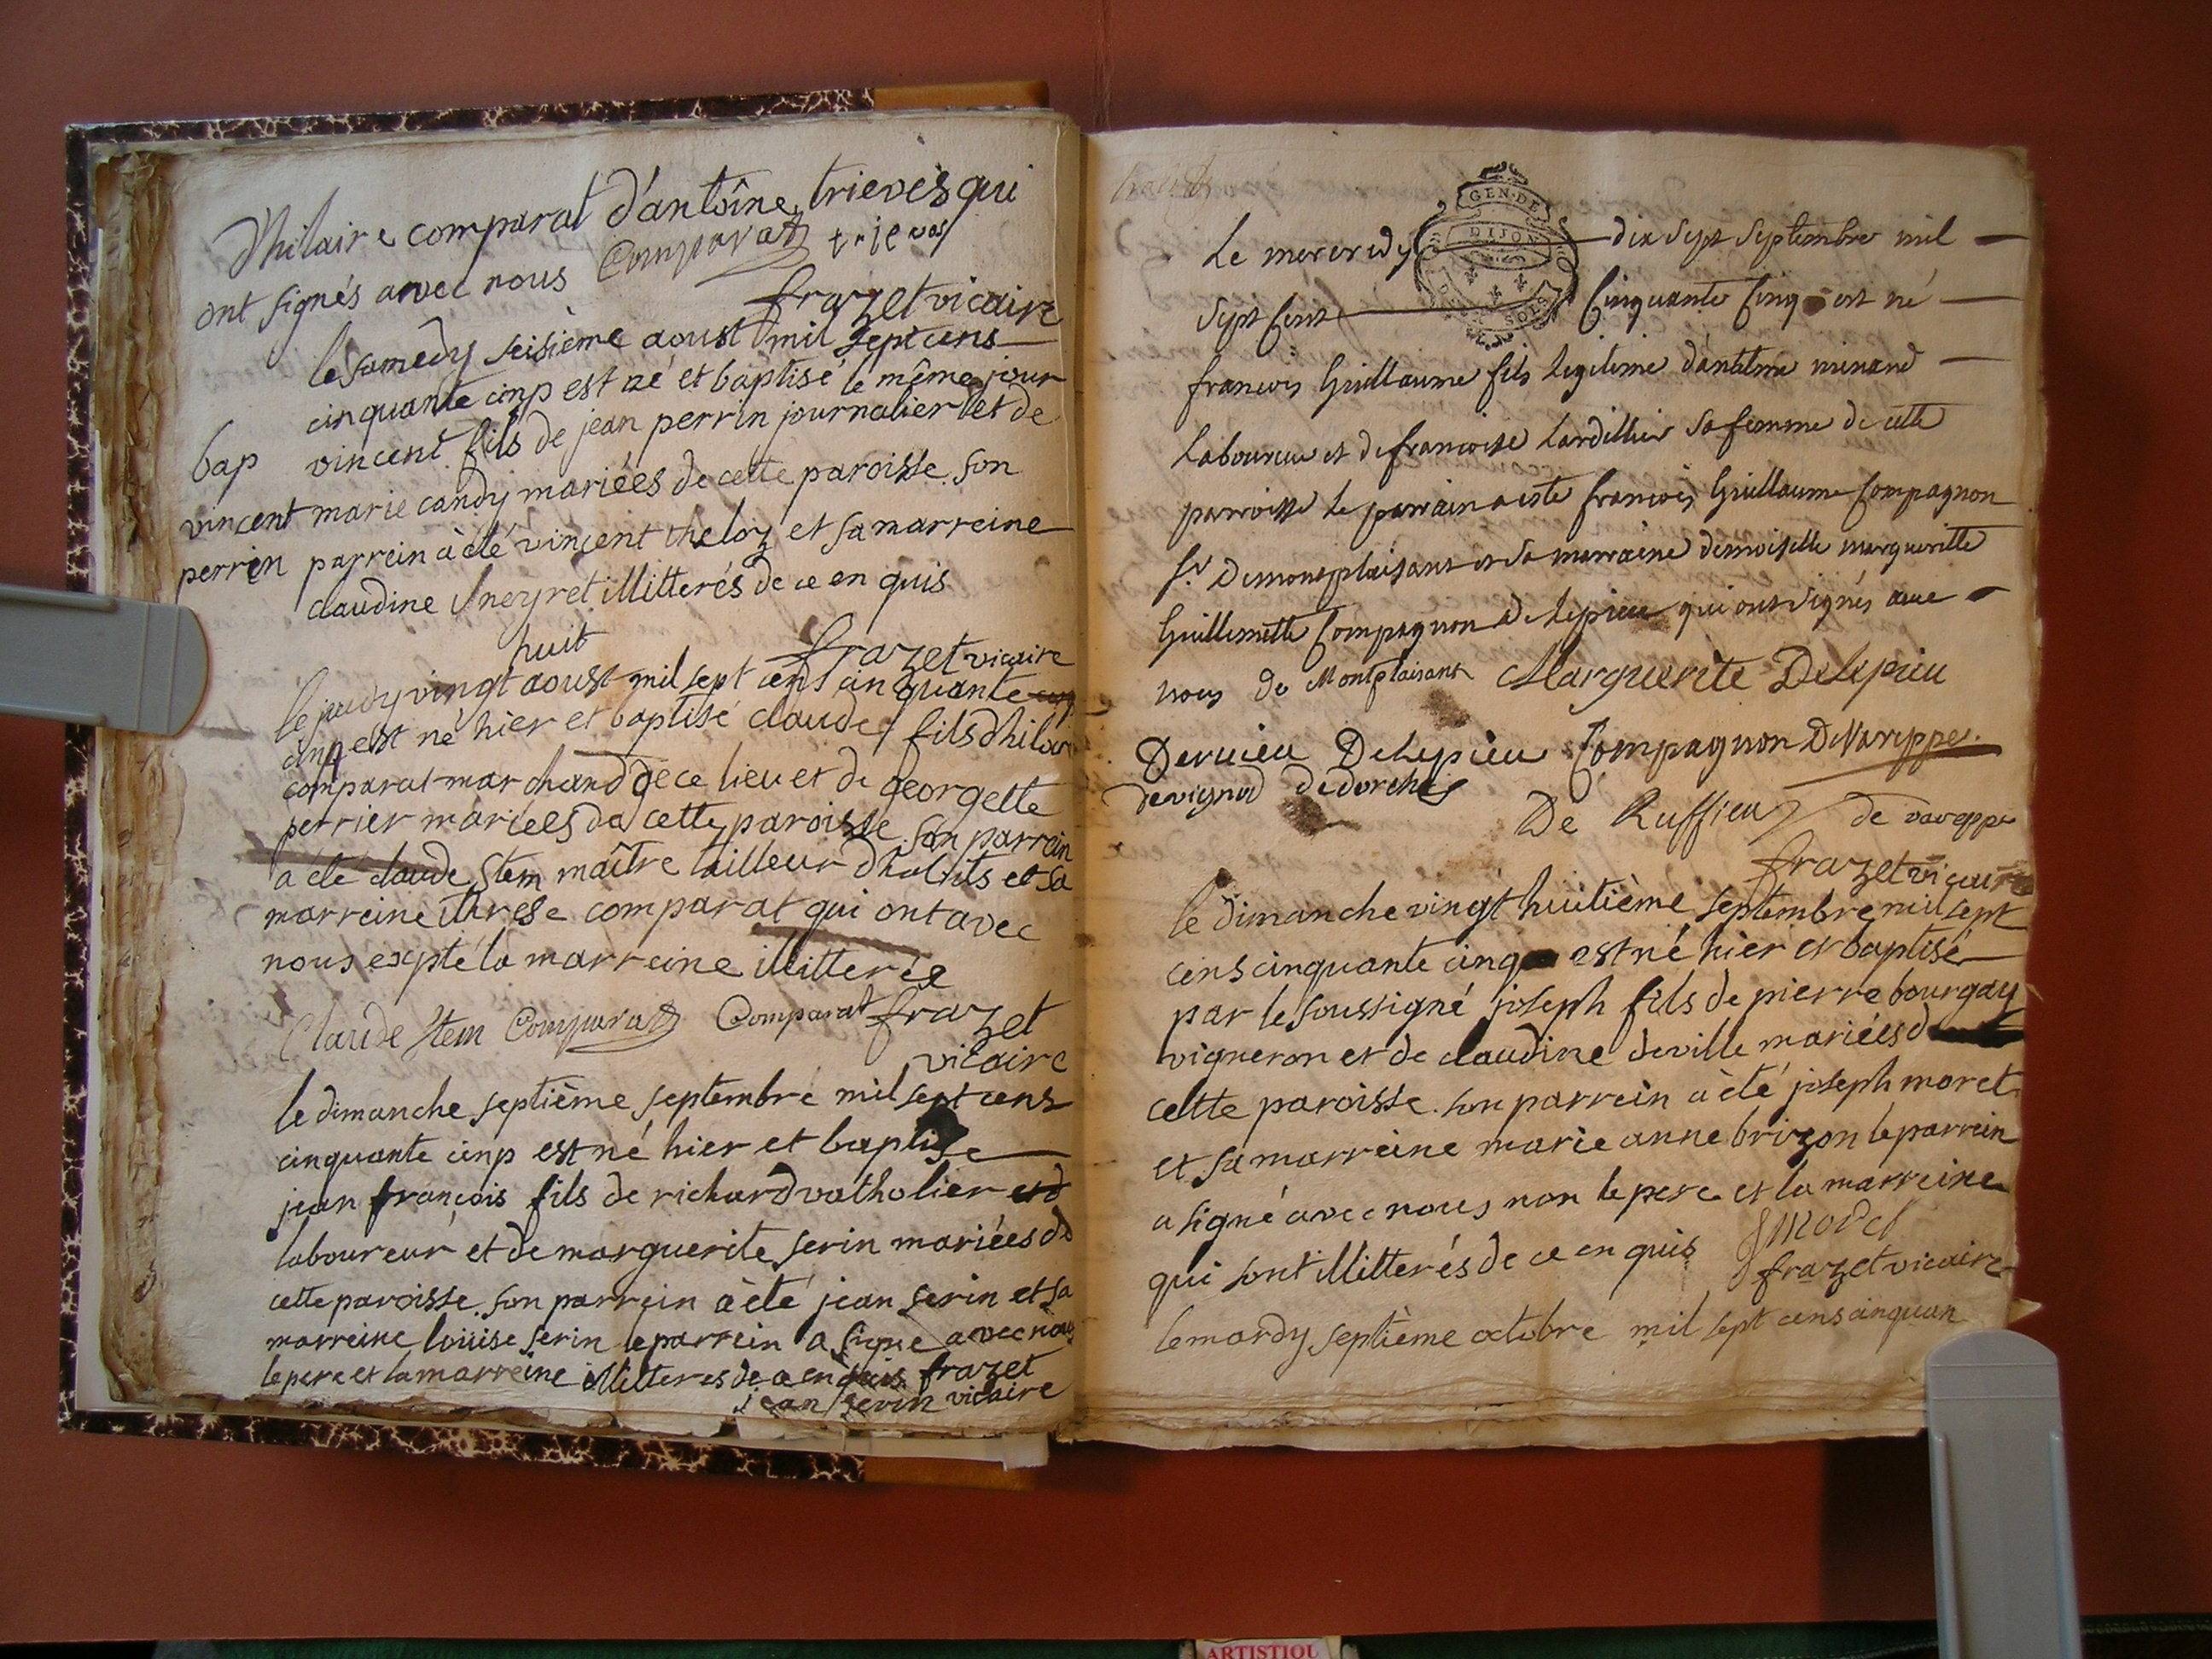 d'hilaire comparat d'antoîne trieves qui
ont signés avec nous Comparat trievos
frazet vicaire
le samedy seisième aoust mil sept cens
cinquante cinp est né et baptisé le même jour
bap vincent fils de jean perrin journalier et de
vincent marie candy mariées de cette paroisse. son
perrin parrein à èté vincent theloz et sa marreine
claudine Sneyret illitterés de ce en quis
frazet vicaire
huit
le jeudy vingt aoust mil sept cens cinquante cinp
cinp est né hier et baptisé claude fils d'hilair
comparat marchand de ce lieu et de georgette
perrier mariées de cette paroisse. son parrein
a èté claude Stem maître tailleur d'habits et sa
marreine therese comparat qui ont avec
nous excpté la marreine illitterée
Claude Stem Comparat Comparat frazet
vicaire
le dimanche septième septembre mil sept cens
cinquante cinp est né hier et baptise
jean françois fils de richard vatholier et d
laboureur et de marguerite serin mariées de
cette paroisse. son parrein à èté jean serin et sa
marreine loüise serin le parrein a signé avec nous
le pere et la marreine illitteres de ce en quis frazet
jean serin vicaire
GEN. DE
DIJON
SOLS
Le mercredy dix sept Septembre mil
Sept Cent Cinquante Cinq est né
francois Guillaume fils legitime d'antelme minand
laboureur et de francoise Lardillier Sa femme de cette
parroisse le parrain a este francois Guillaume Compagnon
Sr. Demontplaisant et Sa marraine demoiselle margueritte
Guillemette Compagnon De Lepieu qui ont Signés avec
nous de Montplaisant Marguerite Delepieu
Dervieu Delepieu Compagnon DeVareppe.
devignod dedorches
De Ruffieu de vareppe
frazet vicaire
le dimanche vingt huitième septembre mil sept
cens cinquante cinq est né hier et baptisé
par le soussigné joseph fils de pierre bourgay
vigneron et de claudine deville mariées d
cette paroisse. son parrein à èté joseph moret
et sa marreine marie anne brizon le parrein
a signé avec nous non le pere et la marreine
qui sont illitterés de ce en quis JMoret
frazet vicaire
le mardy septième octobre mil sept cens cinquan
ARTISTIQU